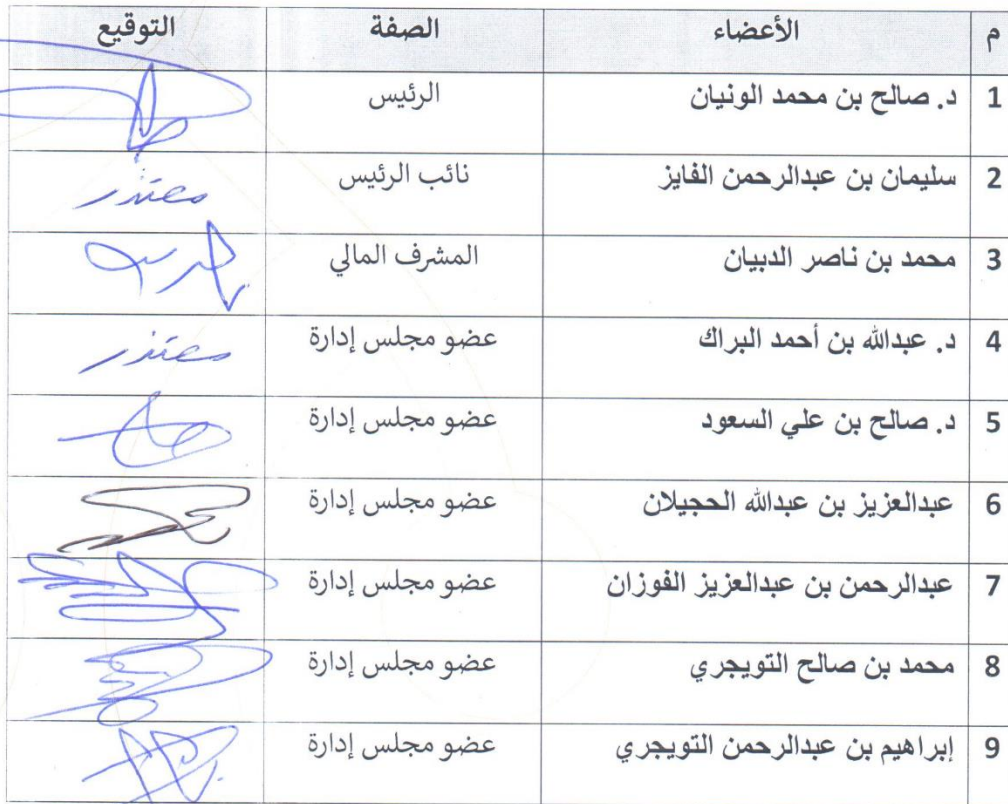 م الأعضاء الصفة التوقيع
1 د. صالح بن محمد الونيان الرئيس
2 سليمان بن عبدالرحمن الفايز نائب الرئيس معتذر
3 محمد بن ناصر الدبيان المشرف المالي
4 د. عبدالله بن أحمد البراك عضو مجلس إدارة معتذر
5 د. صالح بن علي السعود عضو مجلس إدارة
6 عبدالعزيز بن عبدالله الحجيلان عضو مجلس إدارة
7 عبدالرحمن بن عبدالعزيز الفوزان عضو مجلس إدارة
8 محمد بن صالح التويجري عضو مجلس إدارة
9 إبراهيم بن عبدالرحمن التويجري عضو مجلس إدارة